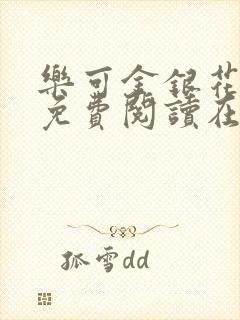 樂可金銀花
免費閱讀在
孤雪dd